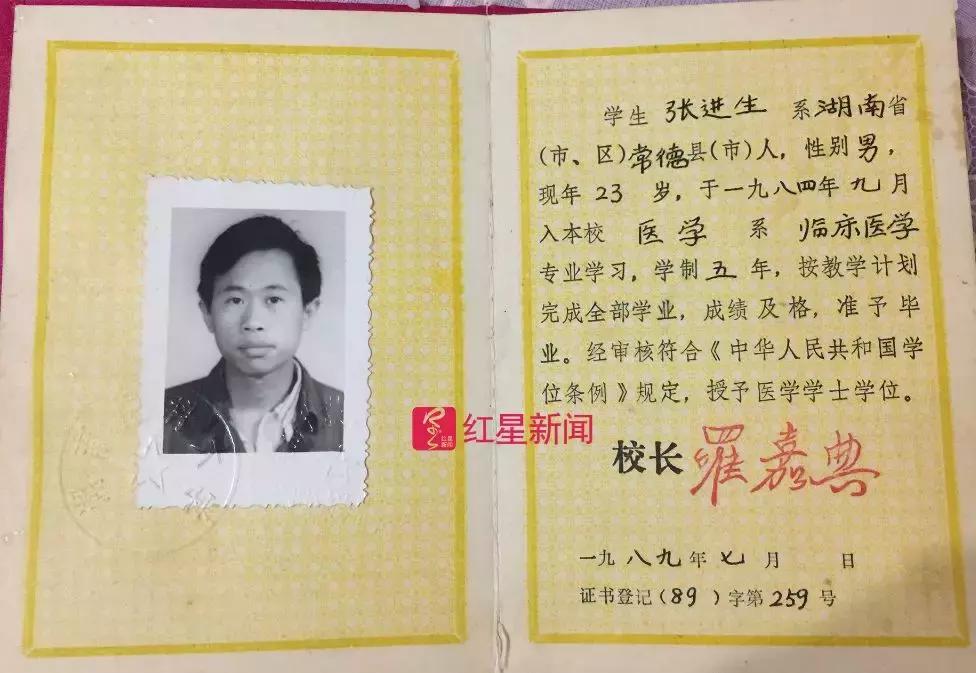 学生 张进生 系湖南省
(市、区)常德县(市)人，性别男，
现年 23 岁，于一九八四年九月
入本校 医学 系 临床医学
专业学习，学制五年，按教学计划
完成全部学业，成绩及格，准予毕
业。经审核符合《中华人民共和国学
位条例》规定，授予医学学士学位。
红星新闻
校长 罗嘉典
一九八九年七月 日
证书登记(89)字第259号